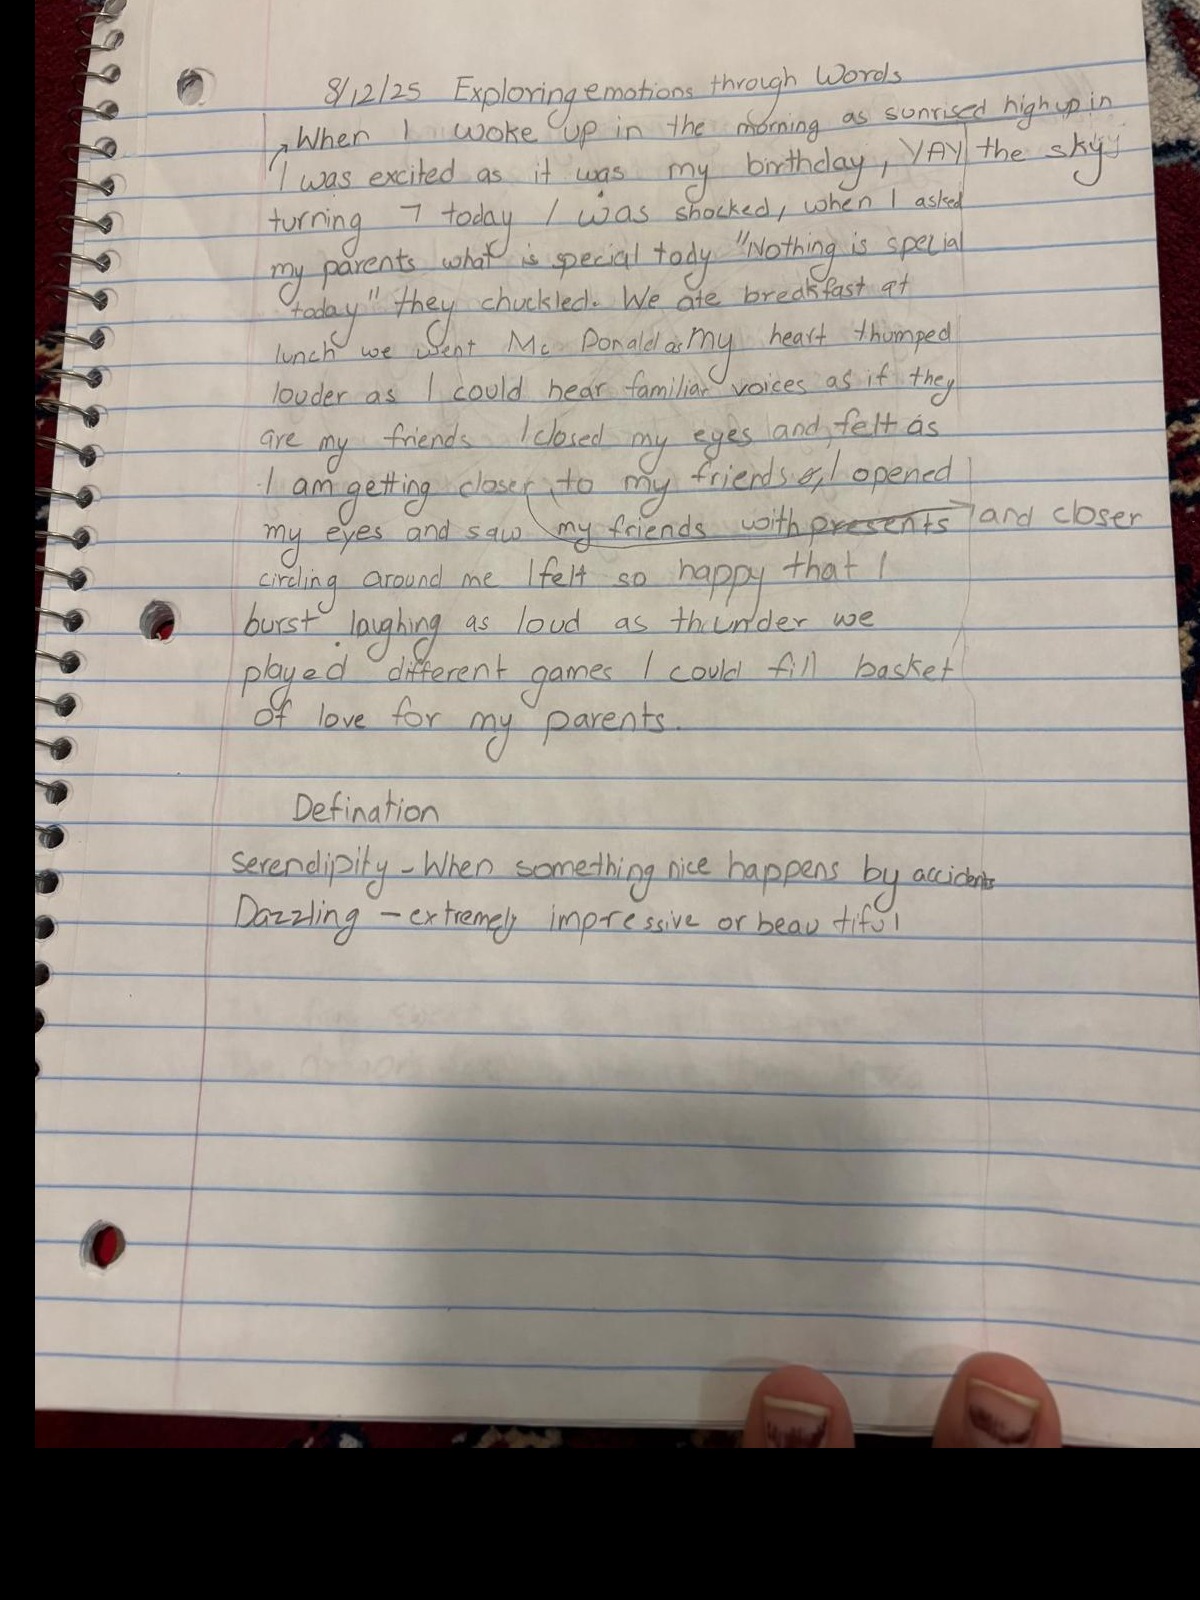 8/12/25 Exploring emotions through Words
When I woke up in the morning as sunrised high up in
I was excited as it was my birthday, YAY the sky
turning 7 today I was shocked, when I asked
my parents what is special tody "Nothing is special
today" they chuckled. We ate breakfast at
lunch we went Mc Donald as my heart thumped
louder as I could hear familiar voices as if they
are my friends I closed my eyes and, felt as
I am getting closer to my friends, I opened
my eyes and saw my friends with presents and closer
circling around me I felt so happy that I
burst laughing as loud as thunder we
played different games I could fill basket
of love for my parents.
Defination
Serendipity - When something nice happens by accidents
Dazzling - extremely impressive or beautiful